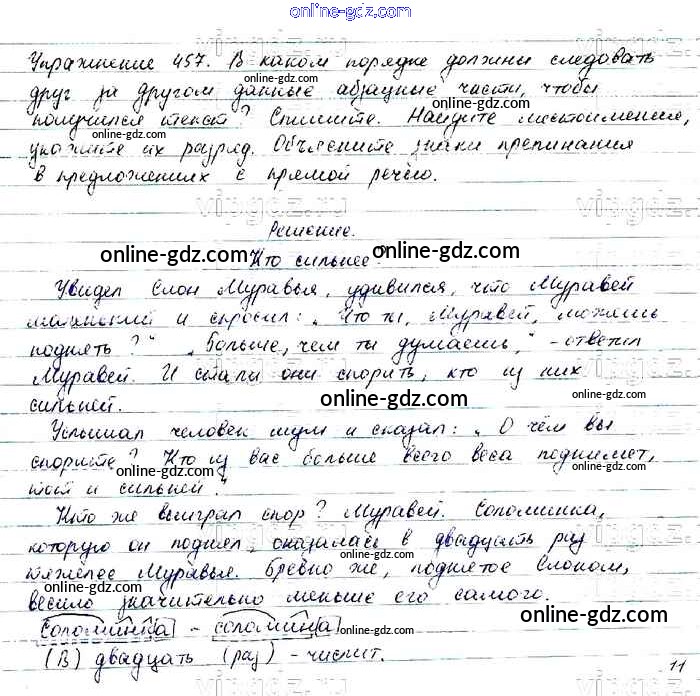 online-gdz.com
Упражнение 457. В каком порядке должны следовать
online-gdz.com
друг за другом данные абзацные части, чтобы
получился текст? Спишите. Найдите местоимения,
online-gdz.com
укажите их разряд. Объясните знаки препинания
online-gdz.com
в предложениях с прямой речью.
Решение.
online-gdz.com online-gdz.com
Кто сильнее?
Увидел Слон Муравья, удивился, что Муравей
маленький и спросил: „Что ты, Муравей, можешь
online-gdz.com
поднять?" „Больше, чем ты думаешь," - ответил
Муравей. И стали они спорить, кто из них
сильней.
online-gdz.com
Услышал человек шум и сказал: „О чём вы
спорите? Кто из вас больше всего веса поднимет,
online-gdz.com
тот и сильней."
Кто же выиграл спор? Муравей. Соломинка,
online-gdz.com
которую он поднял, оказалась в двадцать раз
online-gdz.com
тяжелее Муравья. Бревно же, поднятое Слоном,
online-gdz.com
весило значительно меньше его самого.
online-gdz.com
соломинка - соломина
(В) двадцать (раз) - числит.
online-gdz.com
11